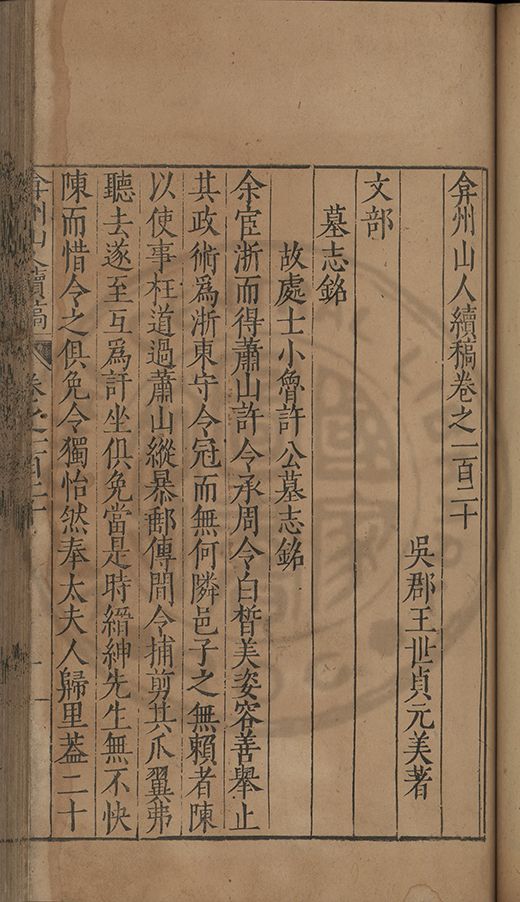 弇州山人續稿卷之一百二十
吳郡王世貞元美著
文部
墓志銘
故處士小魯許公墓志銘
余宦浙而得蕭山許令承周令白皙美姿容善舉止
其政術爲浙東守令冠而無何隣邑子之無賴者陳
以使事枉道過蕭山縱暴郵傳間令捕剪其爪翼弗
聽去遂至互爲訐坐俱免當是時縉紳先生無不快
陳而惜令之俱免令獨怡然奉太夫人歸里葢二十
弇州山人續稿 卷之一百二十 一